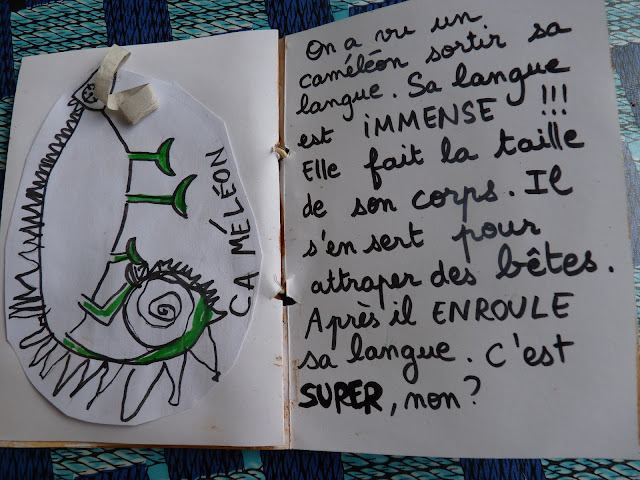 CAMÉLÉON
On a vu un
caméléon sortir sa
langue. Sa langue
est IMMENSE !!!
Elle fait la taille
de son corps. Il
s'en sert pour
attraper des bêtes.
Après il ENROULE
sa langue. C'est
SUPER, non?